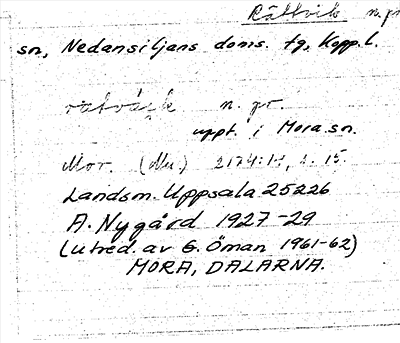 Rättvik n. pr
sn, Nedansiljans doms. tg, Kopp. l.
n. pr.
uppt. i Mora sn.
Mor. (Mu.) 2174:1, s. 15.
Landsm. Uppsala 25226
A. Nygård 1927-29
(utred. av G. Öman 1961-62)
MORA, DALARNA.